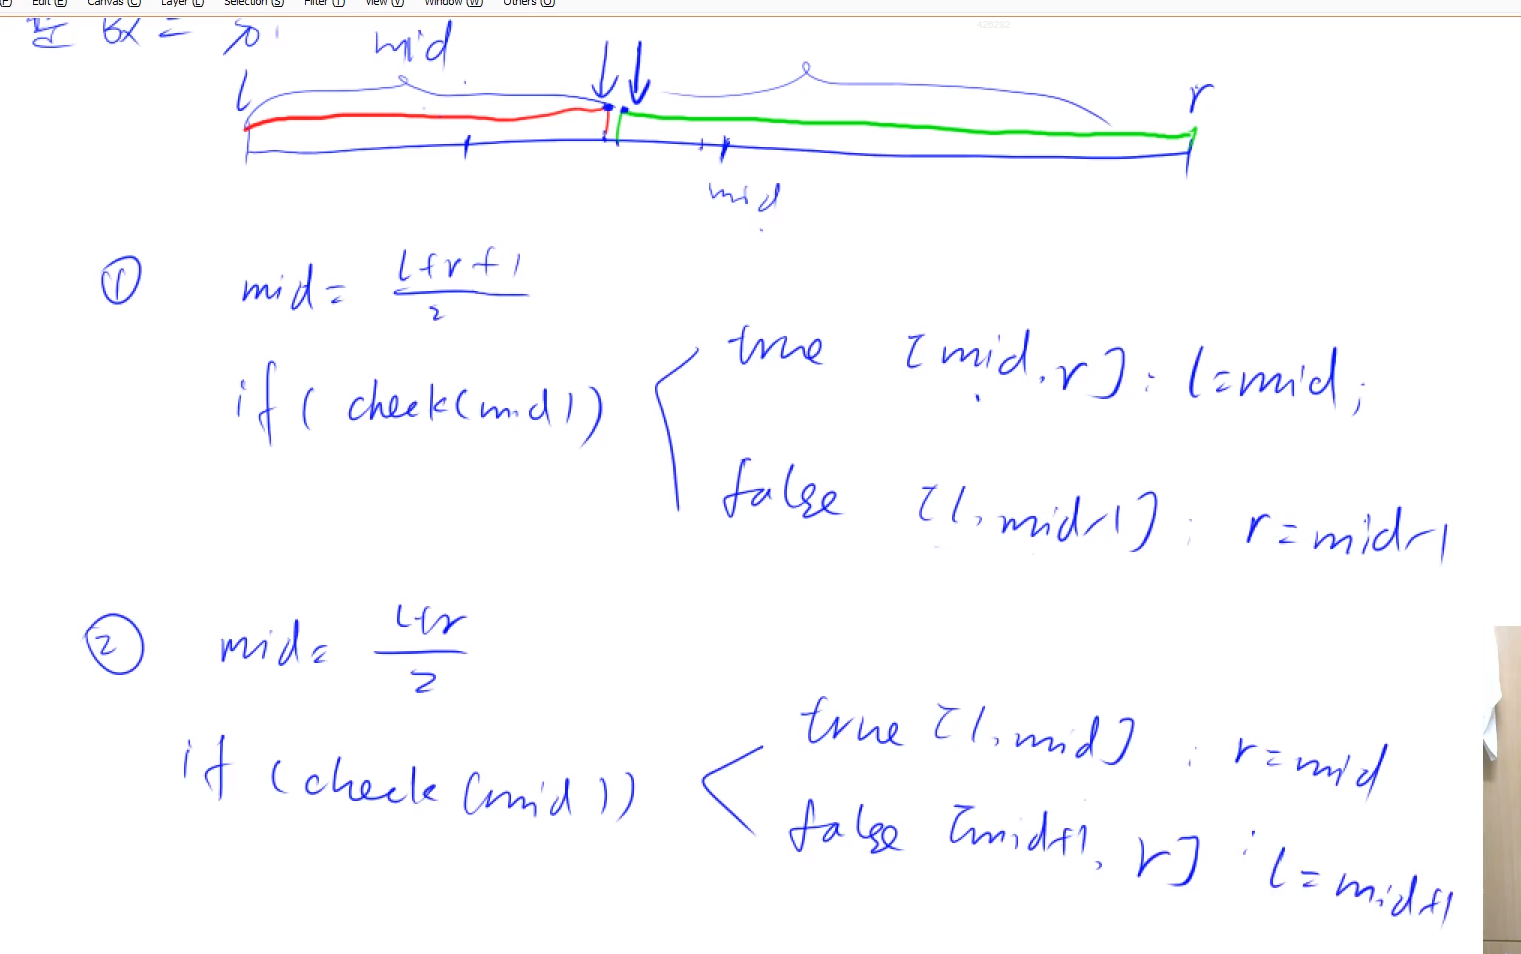 Edit (E) Canvas (C) Layer (L) Selection (S) Filter (T) View (V) Window (W) Others (O)
426282
mid
l
r
mid
① mid = l+r+1
2
if ( check(mid))
true [mid, r] : l=mid;
false [l, mid-1] : r=mid-1
② mid = l+r
2
if (check (mid))
true [l, mid] : r=mid
false [mid+1, r] : l=mid+1